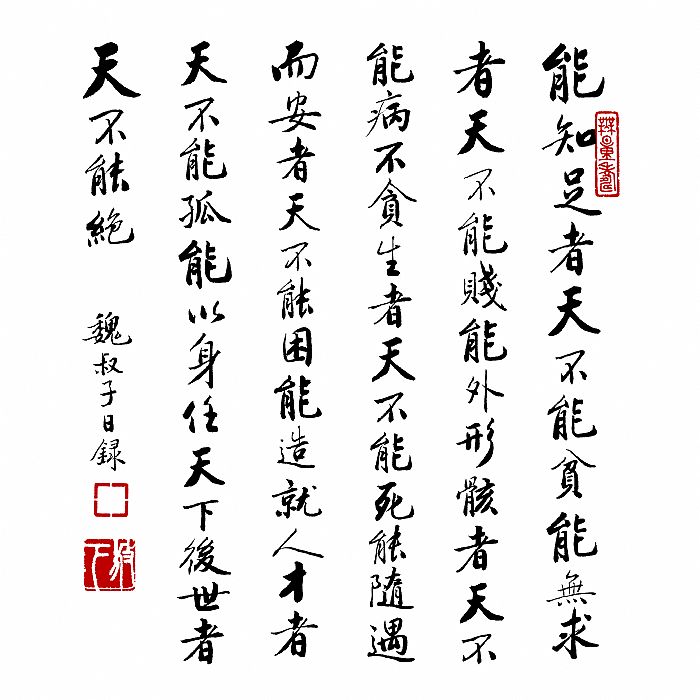 能知足者天不能貧能無求
者天不能賤能外形骸者天不
能病不貪生者天不能死能隨遇
而安者天不能困能造就人才者
天不能孤能以身任天下後世者
天不能絕
魏叔子日録